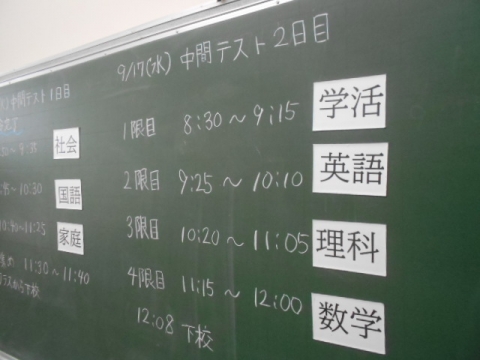 中間テスト1日目
社会
10:30
国語
10:40~11:25
家庭
11:30~11:40
下校
9/17(水) 中間テスト2日目
1限目 8:30~9:15 学活
2限目 9:25~10:10 英語
3限目 10:20~11:05 理科
4限目 11:15~12:00 数学
12:08 下校